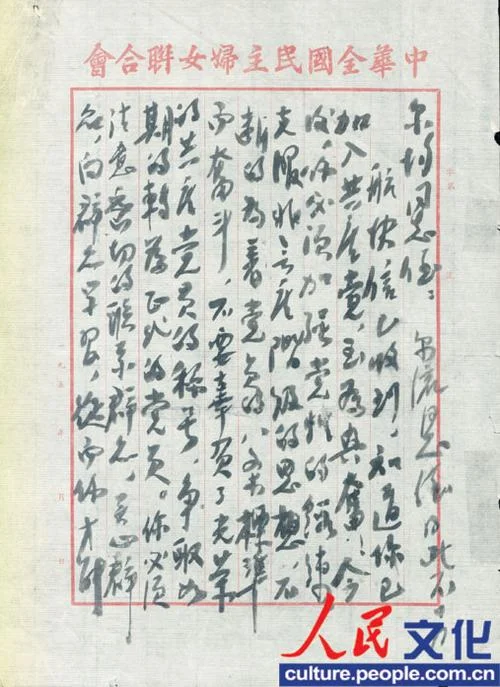 中華全國民主婦女聯合會
尔均同志侄：
航快信已收到，知道你已
加入共产党，至为兴奋！今
后，你必须加强党性的锻炼
克服非无产阶级的思想，不
断的为着党员的八条標準
而奋斗，不要辜负了光荣
的共产党员的称号，争取如
期的转为正式的党员。你必须
注意密切的联系群众，关心群
众，向群众学习，从而你才能
一九五 年 月 日
人民文化
culture.people.com.cn